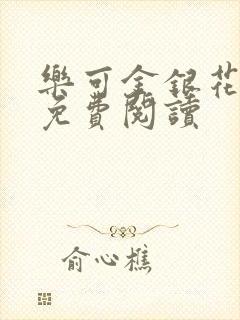 樂可金銀花
免費閱讀
俞心樵